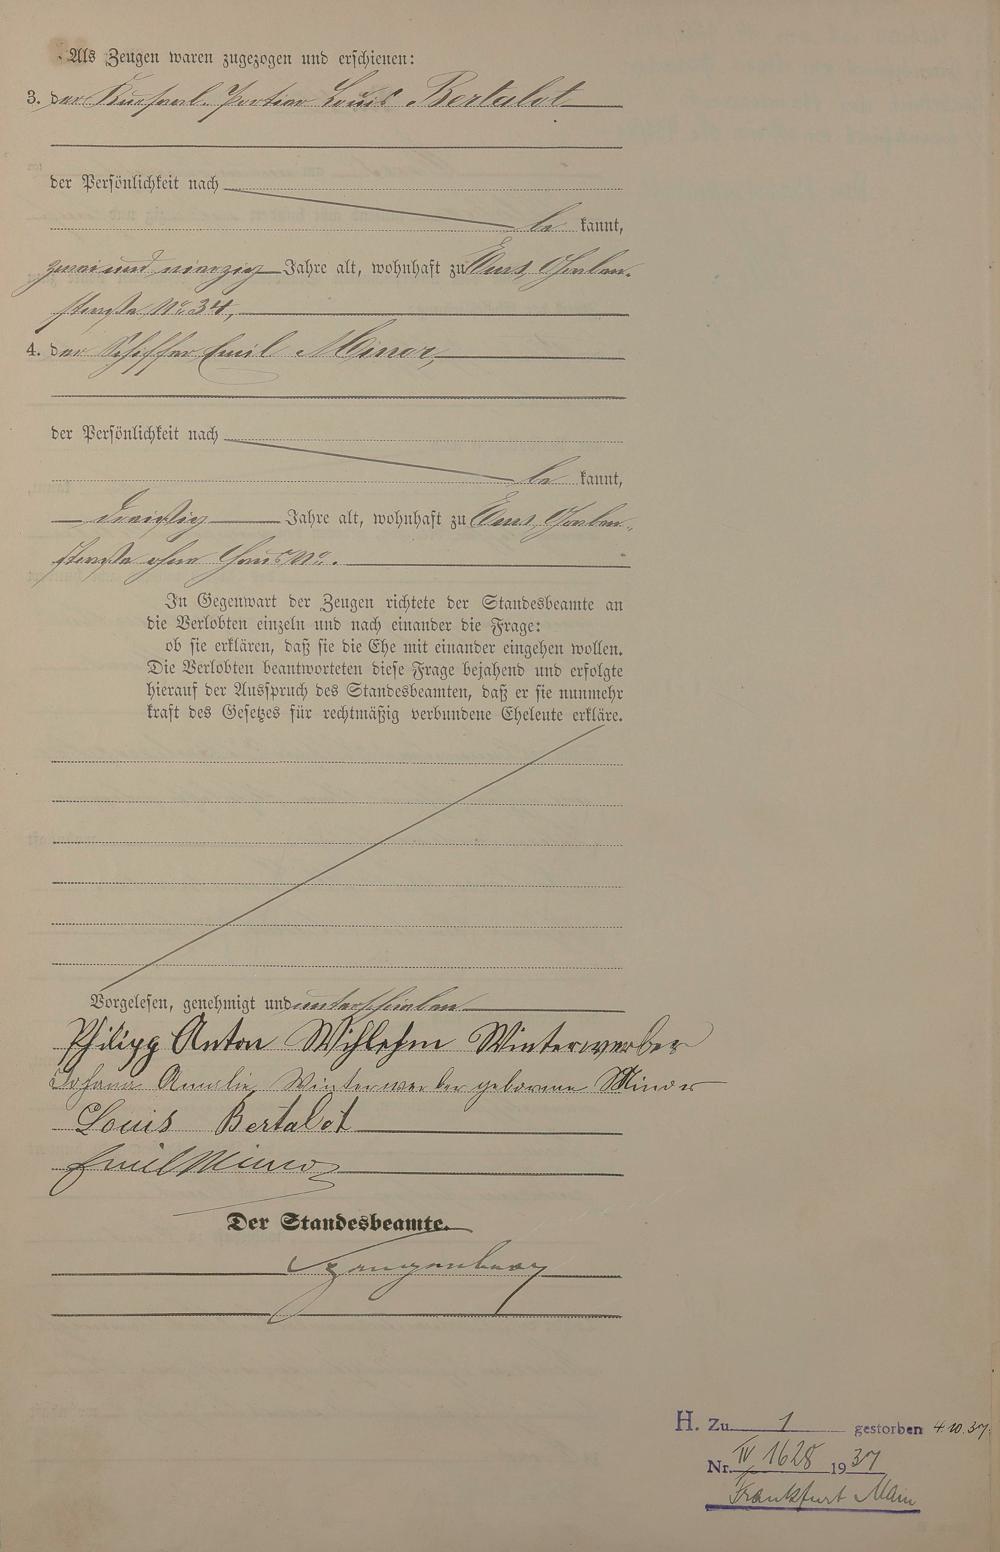 Als Zeugen waren zugezogen und erschienen:
3. der Kursaal-Portier Louis Bertalot
der Persönlichkeit nach
be kannt,
zwei und vierzig Jahre alt, wohnhaft zu Ems, Graben-
straße No. 34,
4. der Schiffer Emil Minor,
der Persönlichkeit nach
be kannt,
dreißig Jahre alt, wohnhaft zu Ems, Graben-
straße ohne Haus No.
In Gegenwart der Zeugen richtete der Standesbeamte an
die Verlobten einzeln und nach einander die Frage:
ob sie erklären, daß sie die Ehe mit einander eingehen wollen.
Die Verlobten beantworteten diese Frage bejahend und erfolgte
hierauf der Ausspruch des Standesbeamten, daß er sie nunmehr
kraft des Gesetzes für rechtmäßig verbundene Eheleute erkläre.
Vorgelesen, genehmigt und unterschrieben
Philipp Anton Wihlehm Winterwerber
Johana Amalie Winterwerber geborene Minor
Louis Bertalot
Emil Minor
Der Standesbeamte.
H. Zu 1 gestorben 4.10.37
Nr. IV 1628 1937
Frankfurt Main